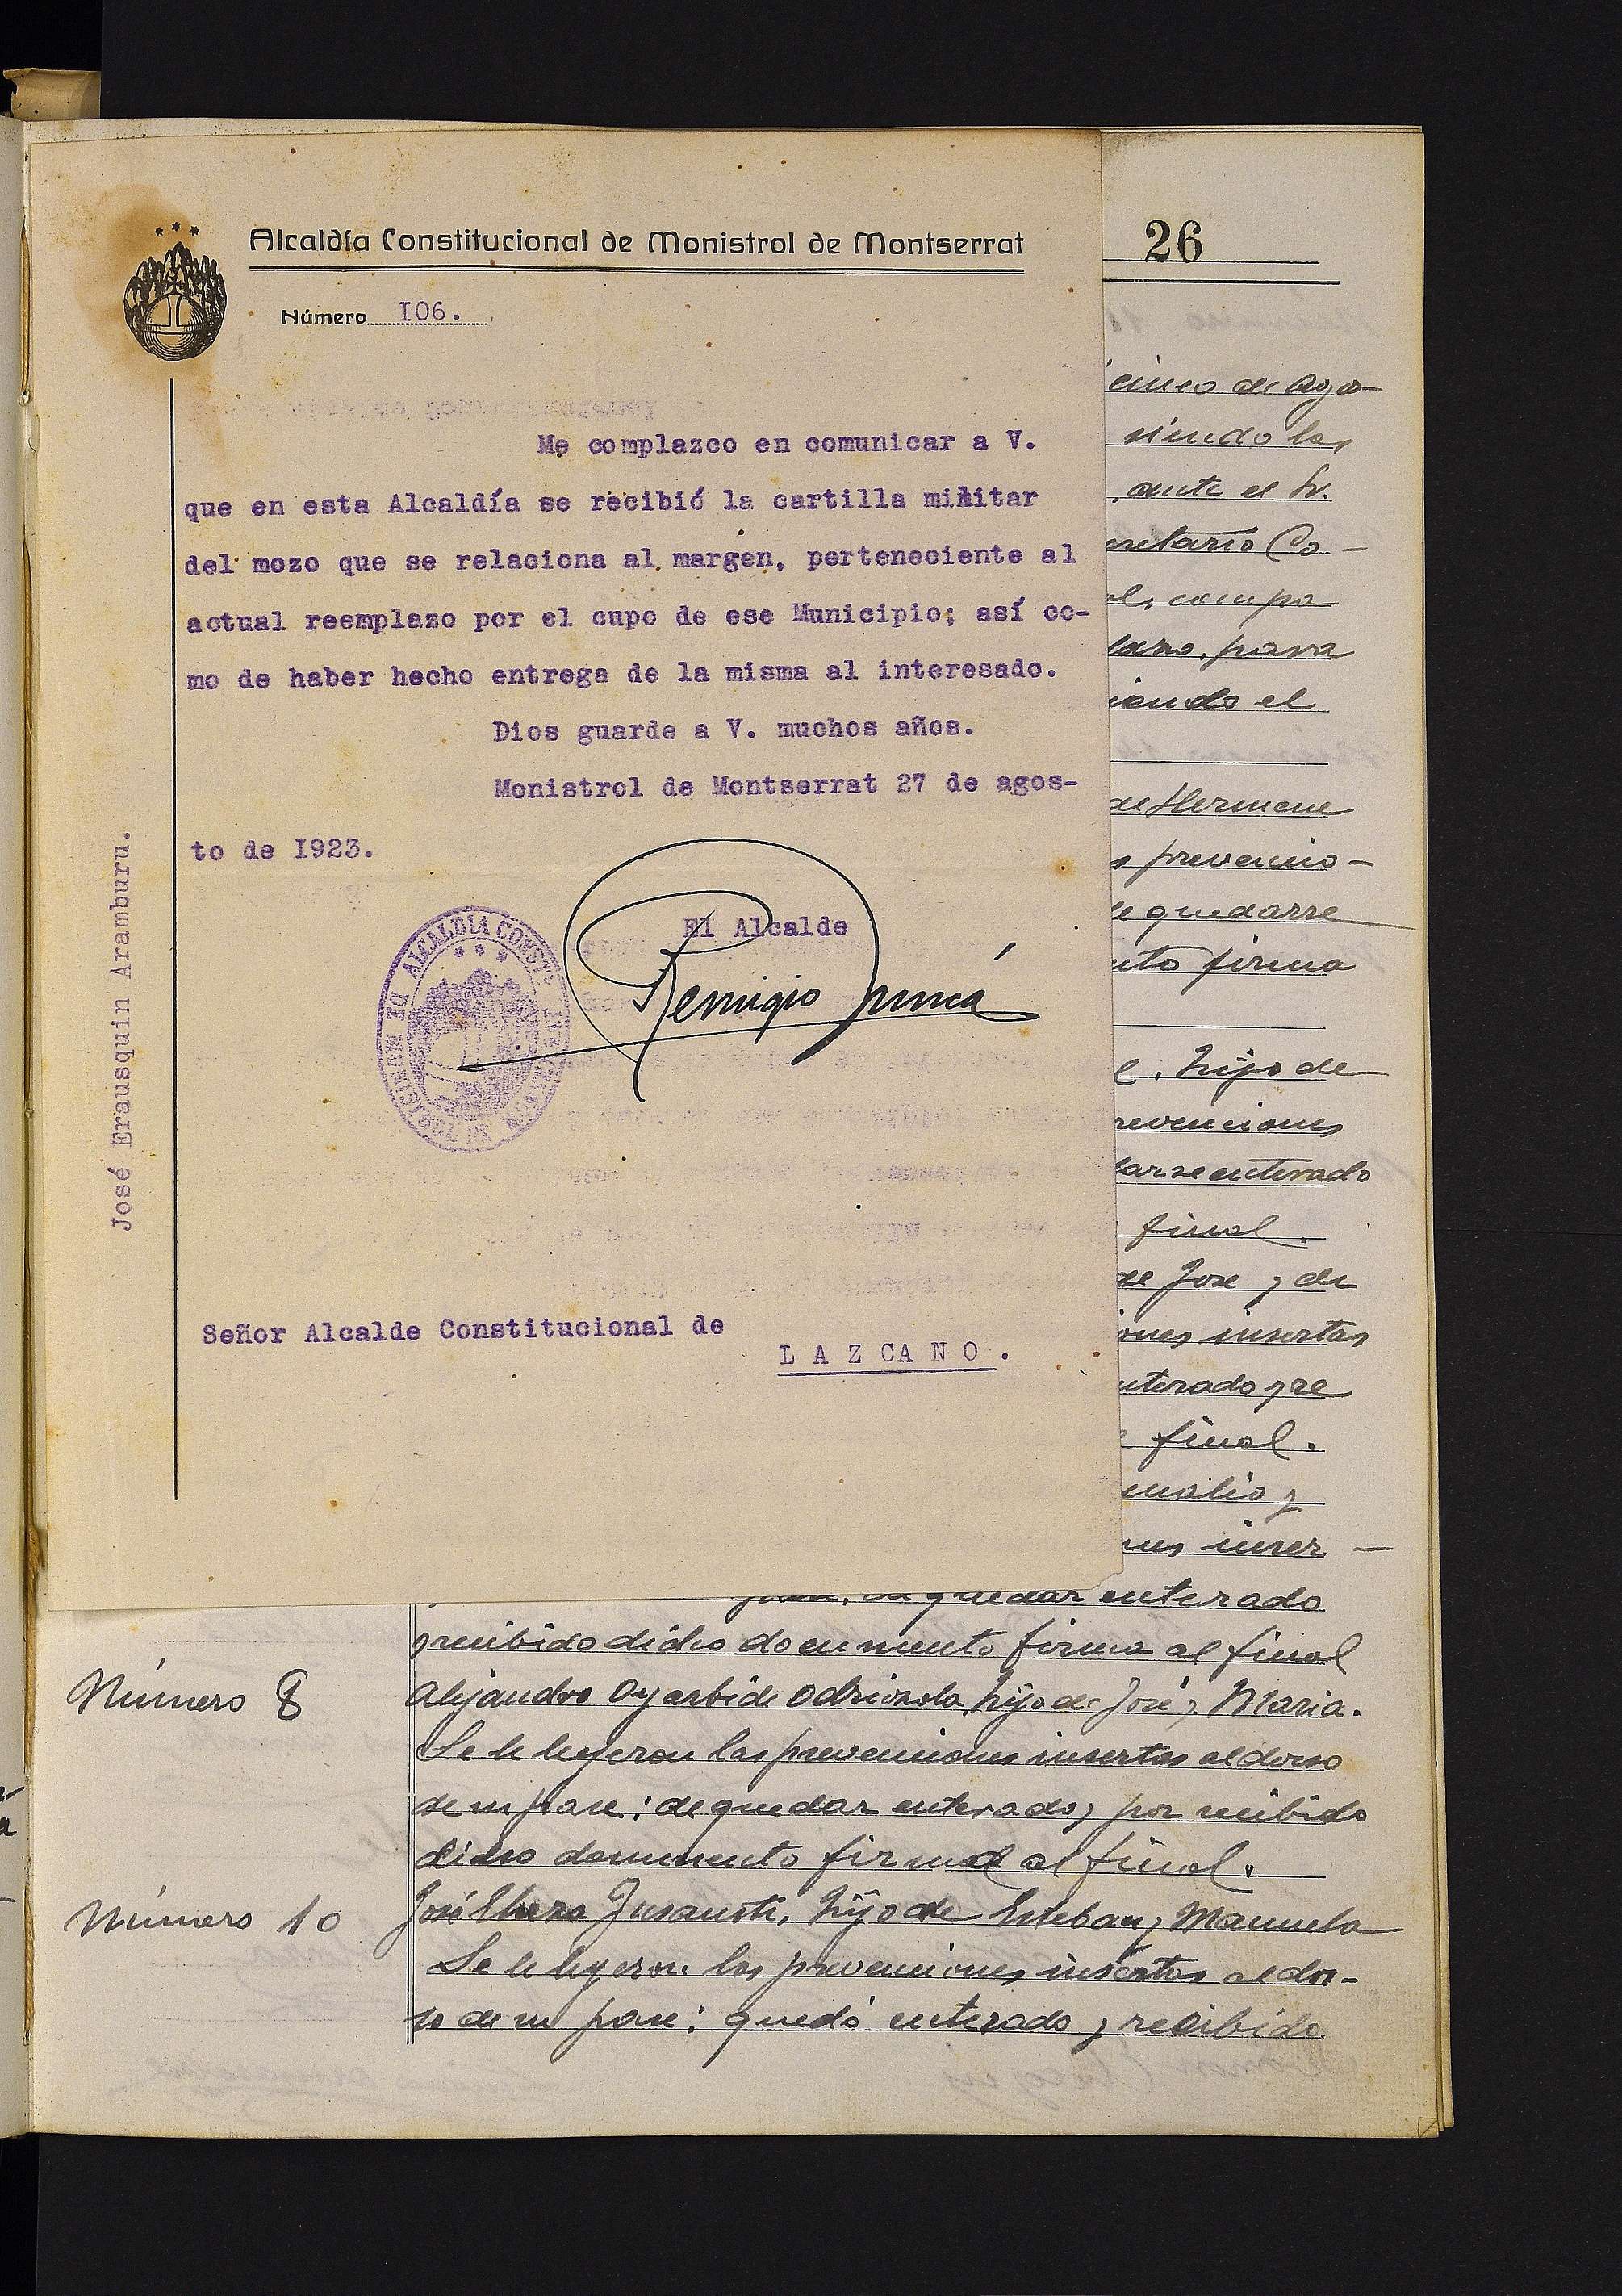 Alcaldía Constitucional de Monistrol de Montserrat
Número 106.
Me complazco en comunicar a V.
que en esta Alcaldía se recibió la cartilla militar
del mozo que se relaciona al margen, perteneciente al
actual reemplazo por el cupo de ese Municipio; así co-
mo de haber hecho entrega de la misma al interesado.
Dios guarde a V. muchos años.
Monistrol de Montserrat 27 de agos-
to de 1923.
El Alcalde
Remigio
José Erausquin Aramburu.
ALCALDIA CONST
Señor Alcalde Constitucional de
LAZCANO.
26
cinco de Agos-
siendo las
, ante el Sr.
Co-
para
iendo el
de Hermene
prevencio-
de quedarse
firma
hijo de
revenciones
darse enterado
final.
de Jose y de
iones insertas
nterado y re
final.
y
inser-
quedar enterado
y recibido dicho documento firma al final
Número 8
Alejandro Oyarbide Odriozola, hijo de José y Maria.
Se le leyeron las prevenciones insertas al dorso
de su pase: de quedar enterado y por recibido
dicho documento firma al final.
Número 10
José Insausti, hijo de Esteban y Manuela
Se le leyeron las prevenciones insertas al dor-
so de su pase: quedó enterado y recibido